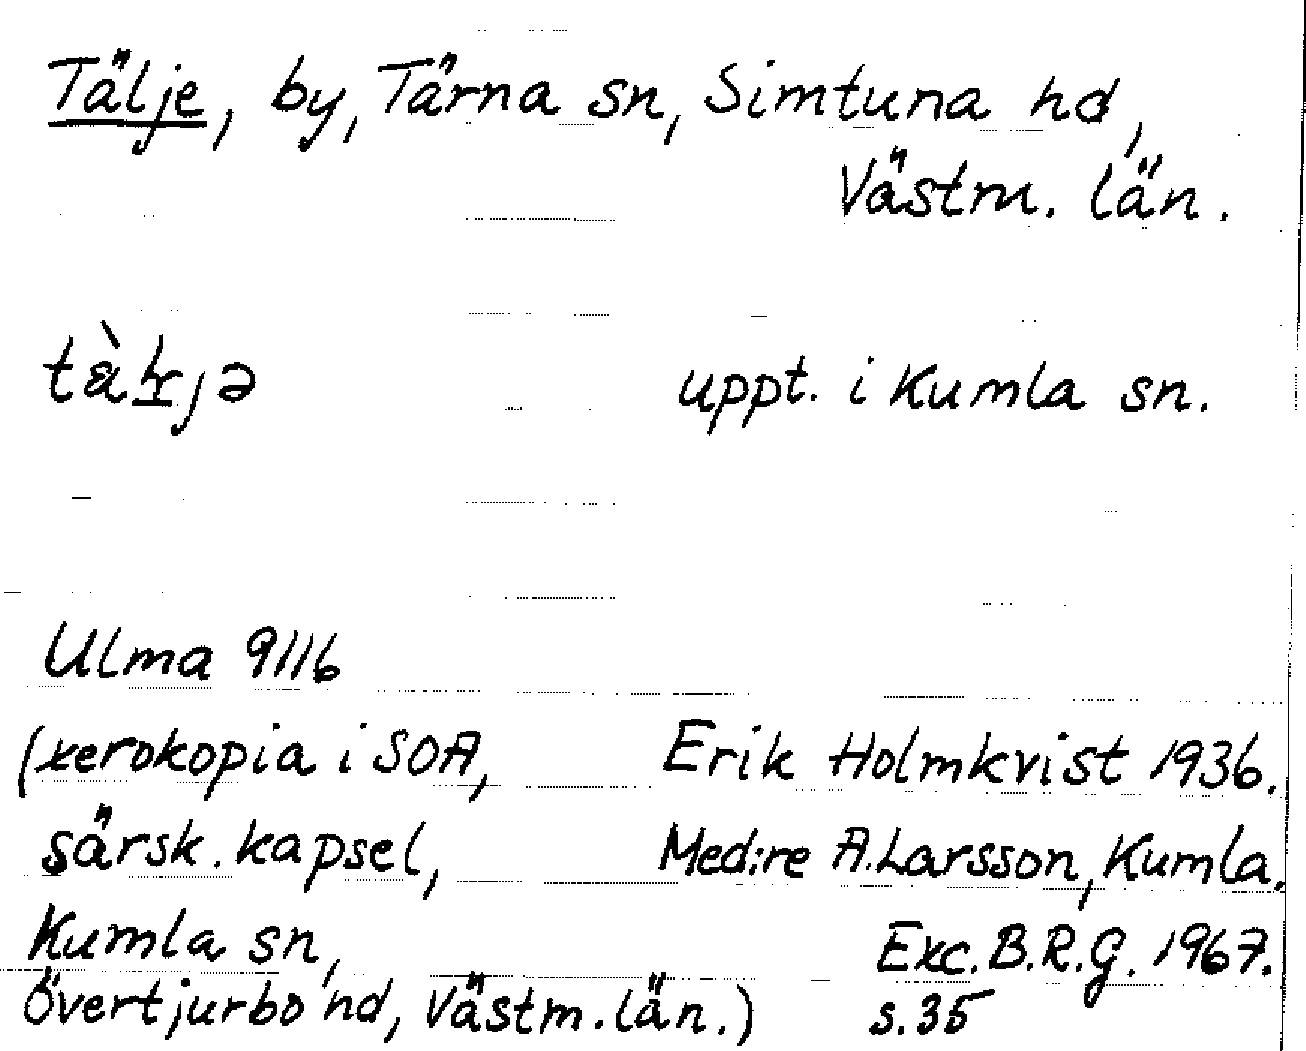 Tälje, by, Tärna sn, Simtuna hd,
Västm. län.
uppt. i Kumla sn.
Ulma 9116
(xerokopia i SOA,
Erik Holmkvist 1936.
särsk. kapsel,
Med:re A. Larsson, Kumla.
Kumla sn,
Exc. B.R.G. 1967.
Övertjurbo hd, Västm. län.)
s. 35